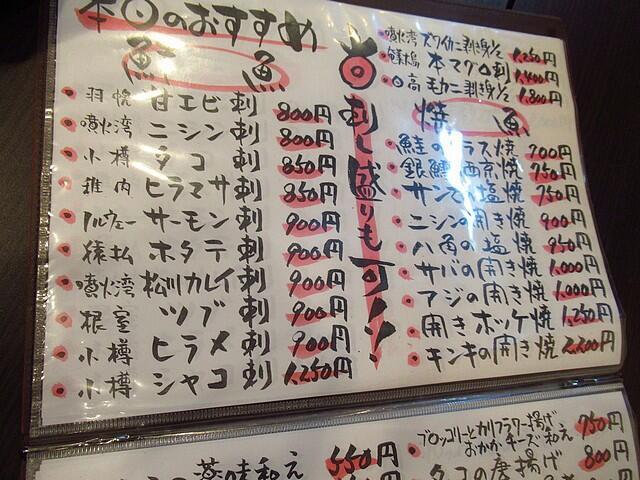 本日のおすすめ
鮮魚
羽幌 甘エビ刺 800円
噴火湾 ニシン刺 800円
小樽 タコ刺 850円
稚内 ヒラマサ刺 850円
ノルウェー サーモン刺 900円
猿払 ホタテ刺 900円
噴火湾 松川カレイ刺 900円
根室 ツブ刺 900円
小樽 ヒラメ刺 900円
小樽 シャコ刺 1,250円
刺し盛りも可ノン!
噴火湾 ズワイカニ剥き身1/2 1,250円
本マグロ刺 1,400円
日高 毛カニ剥き身1/2 1,800円
焼魚
鮭のハラス焼 700円
銀鱈西京焼 750円
サンマ塩焼 750円
ニシンの開き焼 900円
八角の塩焼 950円
サバの開き焼 1,000円
アジの開き焼 1,000円
開きホッケ焼 1,250円
キンキの開き焼 2,200円
薬味和え 550円
ブロッコリーとカリフラワー揚げ
おかかチーズ和え 750円
タコの唐揚げ 800円